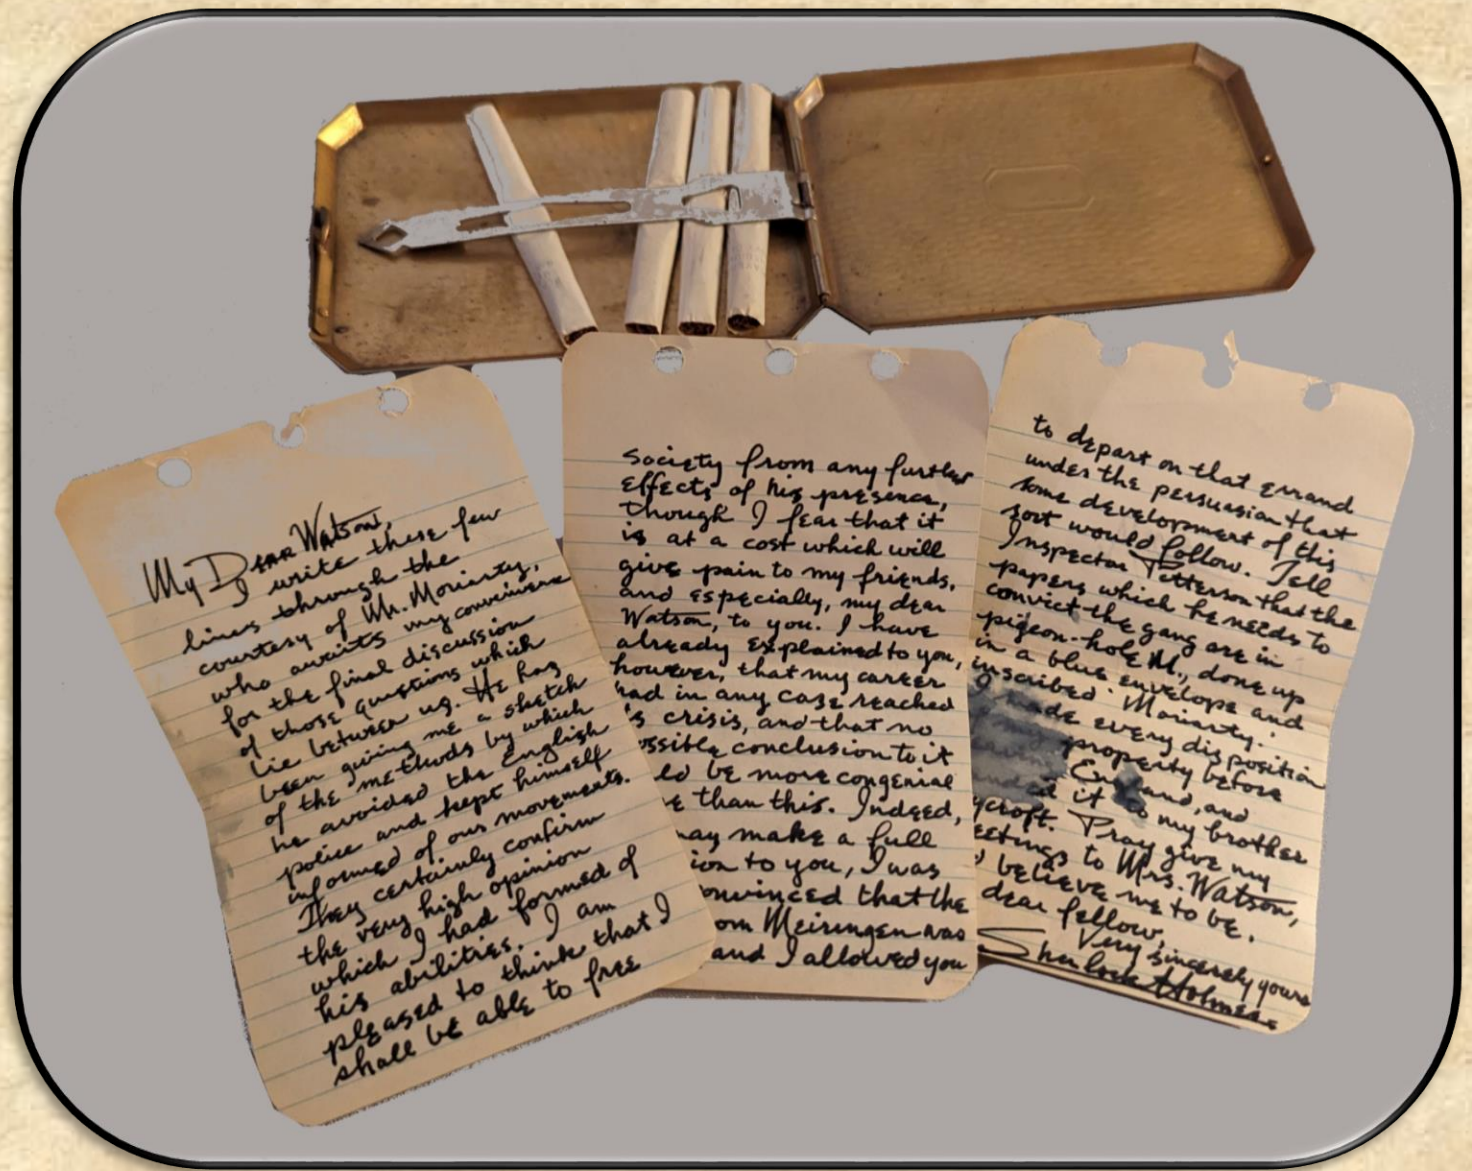 My Dear Watson,
I write these few
lines through the
courtesy of Mr. Moriarty,
who awaits my convenience
for the final discussion
of those questions which
lie between us. He has
been giving me a sketch
of the methods by which
he avoided the English
police and kept himself
informed of our movements.
They certainly confirm
the very high opinion
which I had formed of
his abilities. I am
pleased to think that I
shall be able to free
society from any further
effects of his presence,
though I fear that it
is at a cost which will
give pain to my friends,
and especially, my dear
Watson, to you. I have
already explained to you,
however, that my career
had in any case reached
's crisis, and that no
ossible conclusion to it
ld be more congenial
e than this. Indeed,
may make a full
ion to you, I was
onvinced that the
om Meiringen was
and I allowed you
to depart on that errand
under the persuasion that
some development of this
sort would follow. Tell
Inspector Patterson that the
papers which he needs to
convict the gang are in
pigeon-hole M., done up
in a blue envelope and
inscribed "Moriarty."
I made every disposition
of my property before
leaving England, and
it to my brother
ycroft. Pray give my
eetings to Mrs. Watson,
believe me to be,
dear fellow,
Very sincerely yours
Sherlock Holmes